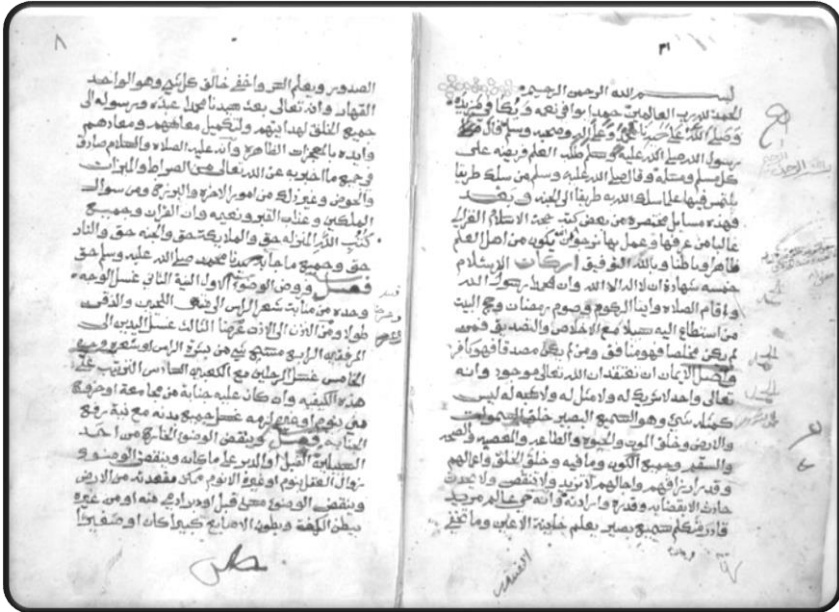 بســـم الله الرحمن الرحيم
الحمد لله رب العالمين حمدا يوافي نعمه ويكافي مزيده
وصلى الله على سيدنا محمد وعلى اله وصحبه وسلم قال
رسول الله صلى الله عليه وسلم طلب العلم فريضه على
كل مسلم ومسلمة وقال صلى الله عليه وسلم من سلك طريقا
يلتمس فيها علما سلك الله به طريقا الى الجنه وبعـــد
فهذه مسايل مختصره من بعض كتب حجة الاسلام الغزالي
غالبا من عرفها وعمل بها نرجو من الله ان يكون من اهل العلم
ظاهرا وباطنا وبالله التوفيق اركان الاسلام
خمسه شهادة ان لا اله الا الله وان محمدا رسول الله
واقام الصلاه وايتا الزكوة وصوم رمضان وحج البيت
من استطاع اليه سبيلا مع الاخلاص والتصديق فمن
لم يكن مخلصا فهو منافق ومن لم يكن مصدقا فهو كافر
واصل الايمان ان تعتقد ان الله تعالى موجود وانه
تعالى واحد لا شريك له ولا مثل له ولا شبه له ليس
كمثله شي وهو السميع البصير خلق السموات
والارض وخلق الموت والحيوة والطاعه والمعصيه والصحه
والسقم وجميع الكون وما فيه وخلق الخلق واعمالهم
وقدر ارزاقهم واجالهم لا تزيد ولا تنقص ولا يحدث
حادث الا بقضايه وقدره وارادته وانه حي عالم مريد
قادر متكلم سميع بصير يعلم خاينة الاعين وما تخفي
٨
الصدور ويعلم السر واخفى خالق كل شي وهو الواحد
القهار وانه تعالى بعث سيدنا محمدا عبده ورسوله الى
جميع الخلق لهدايتهم ولتكميل معاشهم ومعادهم
وايده بالمعجزات الظاهره وانه عليه الصلاه والسلام صادق
في جميع ما اخبر به عن الله تعالى من الصراط والميزان
والحوض وغير ذلك من امور الاخره والبرزخ ومن سوال
الملكين وعذاب القبر ونعيمه وان القران وجميع
كتب الله المنزله حق والملايكة حق والجنه حق والنار
حق وجميع ما جا به سيدنا محمد صلى الله عليه وسلم حق
فصـــل فروض الوضو الاول النية الثاني غسل الوجه
وحده من منابت شعر الراس الى منتهى اللحيين والذقن
طولا ومن الاذن الى الاذن عرضا الثالث غسل اليدين الى
المرفقين الرابع مسح شي من بشرة الراس او شعره
الخامس غسل الرجلين مع الكعبين السادس الترتيب على
هذه الكيفيه وان كان عليه جنابة من مجامعة او خروج
مني بنوم او غيره لزمه غسل جميع بدنه مع نية رفع
الجنابه فصـــل وينقض الوضو الخارج من احد
السبيلين القبل او الدبر على ما كان وينقض الوضو
زوال العقل بنوم او غيره الا نوم ممكن مقعدته من الارض
وينقض الوضو مس قبل او دبر ادمي منه او من غيره
ببطن الكف وبطون الاصابع كبيرا كان او صغيرا